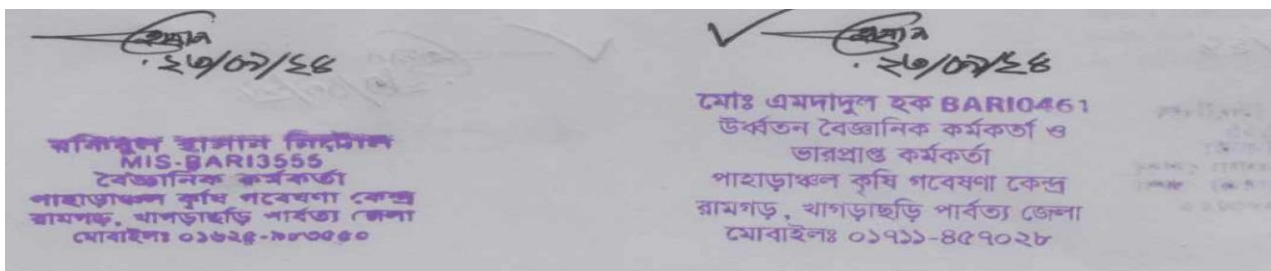 ২৩/০৯/২৪
হাসান
MIS-BARI3555
বৈজ্ঞানিক কর্মকর্তা
পাহাড়াঞ্চল কৃষি গবেষণা কেন্দ্র
রামগড়, খাগড়াছড়ি পার্বত্য জেলা
মোবাইলঃ
২৩/০৯/২৪
মোঃ এমদাদুল হক BARI0461
উর্ধ্বতন বৈজ্ঞানিক কর্মকর্তা ও
ভারপ্রাপ্ত কর্মকর্তা
পাহাড়াঞ্চল কৃষি গবেষণা কেন্দ্র
রামগড়, খাগড়াছড়ি পার্বত্য জেলা
মোবাইলঃ ০১৯১১-৪৫৭০২৮